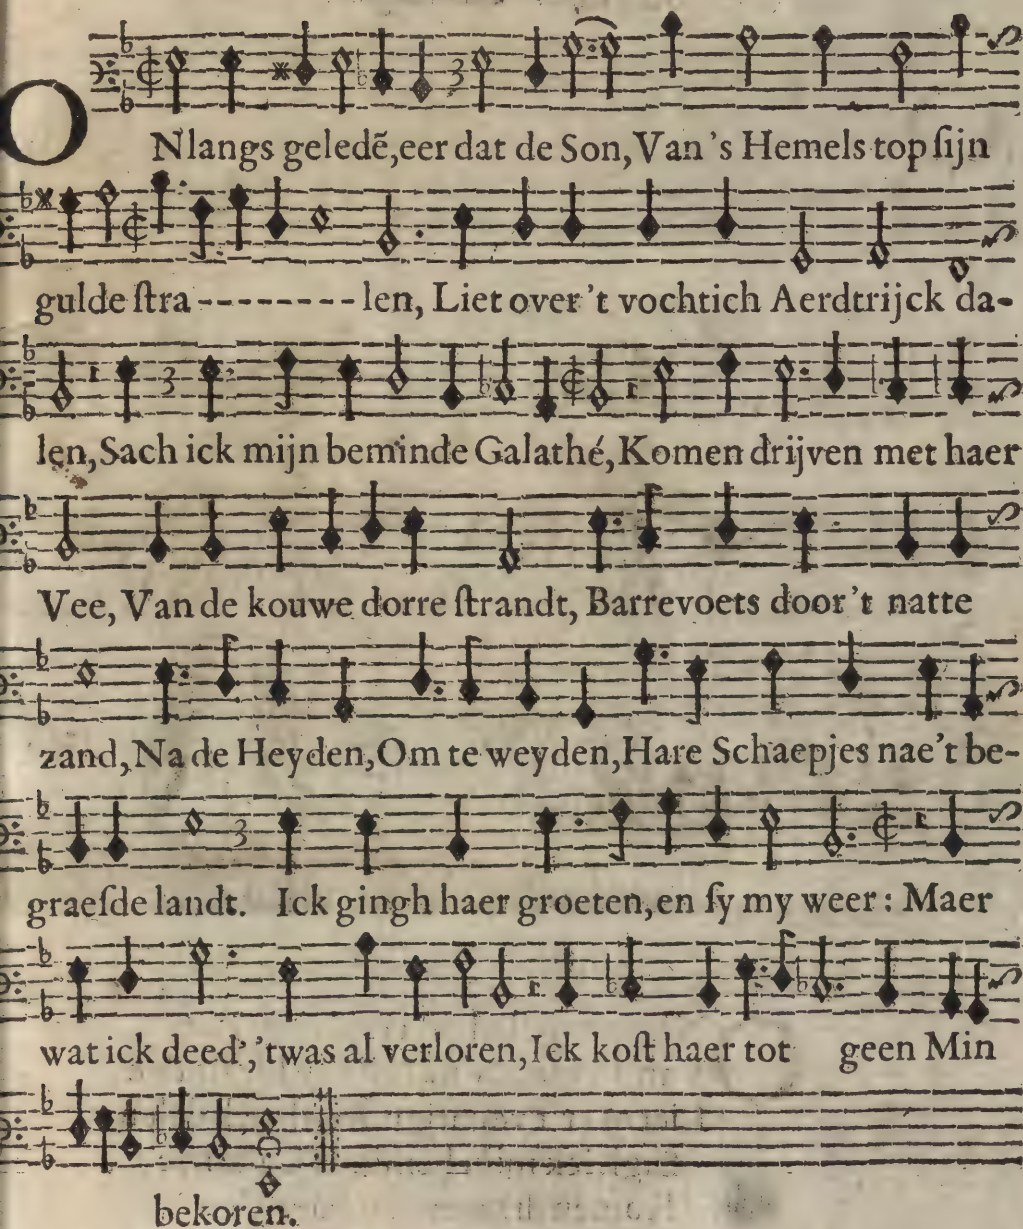 ONlangs geledẽ,eer dat de Son, Van 's Hemels top ſijn
gulde ſtra - - - - - - - - len, Liet over 't vochtich Aerdtrijck da-
len, Sach ick mijn beminde Galathé, Komen drijven met haer
Vee, Van de kouwe dorre ſtrandt, Barrevoets door 't natte
zand, Na de Heyden, Om te weyden, Hare Schaepjes nae't be-
graeſde landt. Ick gingh haer groeten, en ſy my weer : Maer
wat ick deed', 'twas al verloren, Ick koſt haer tot geen Min
bekoren.